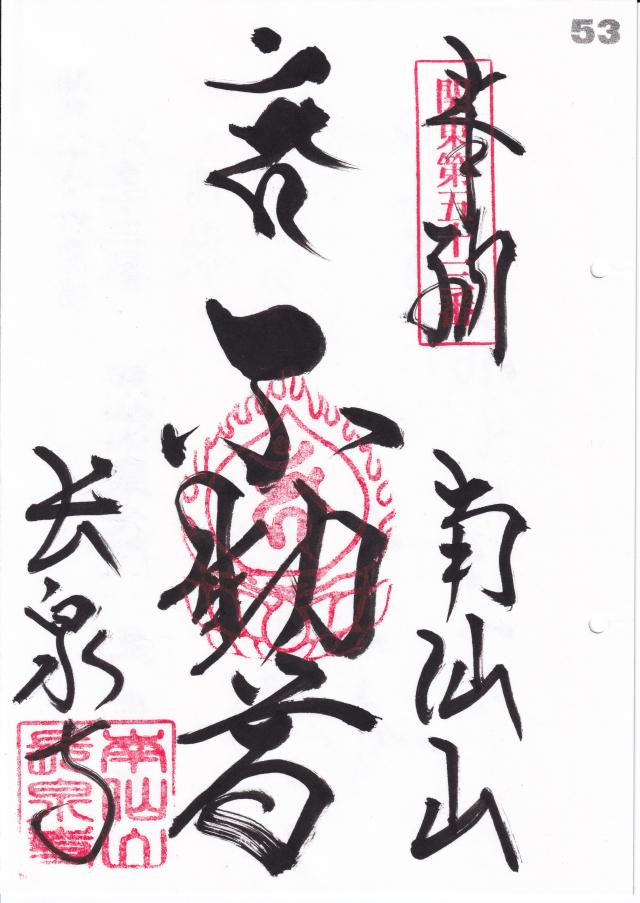 53
奉拝
関東第五十三番
南仙山
不動尊
長泉寺
南仙山
長泉寺